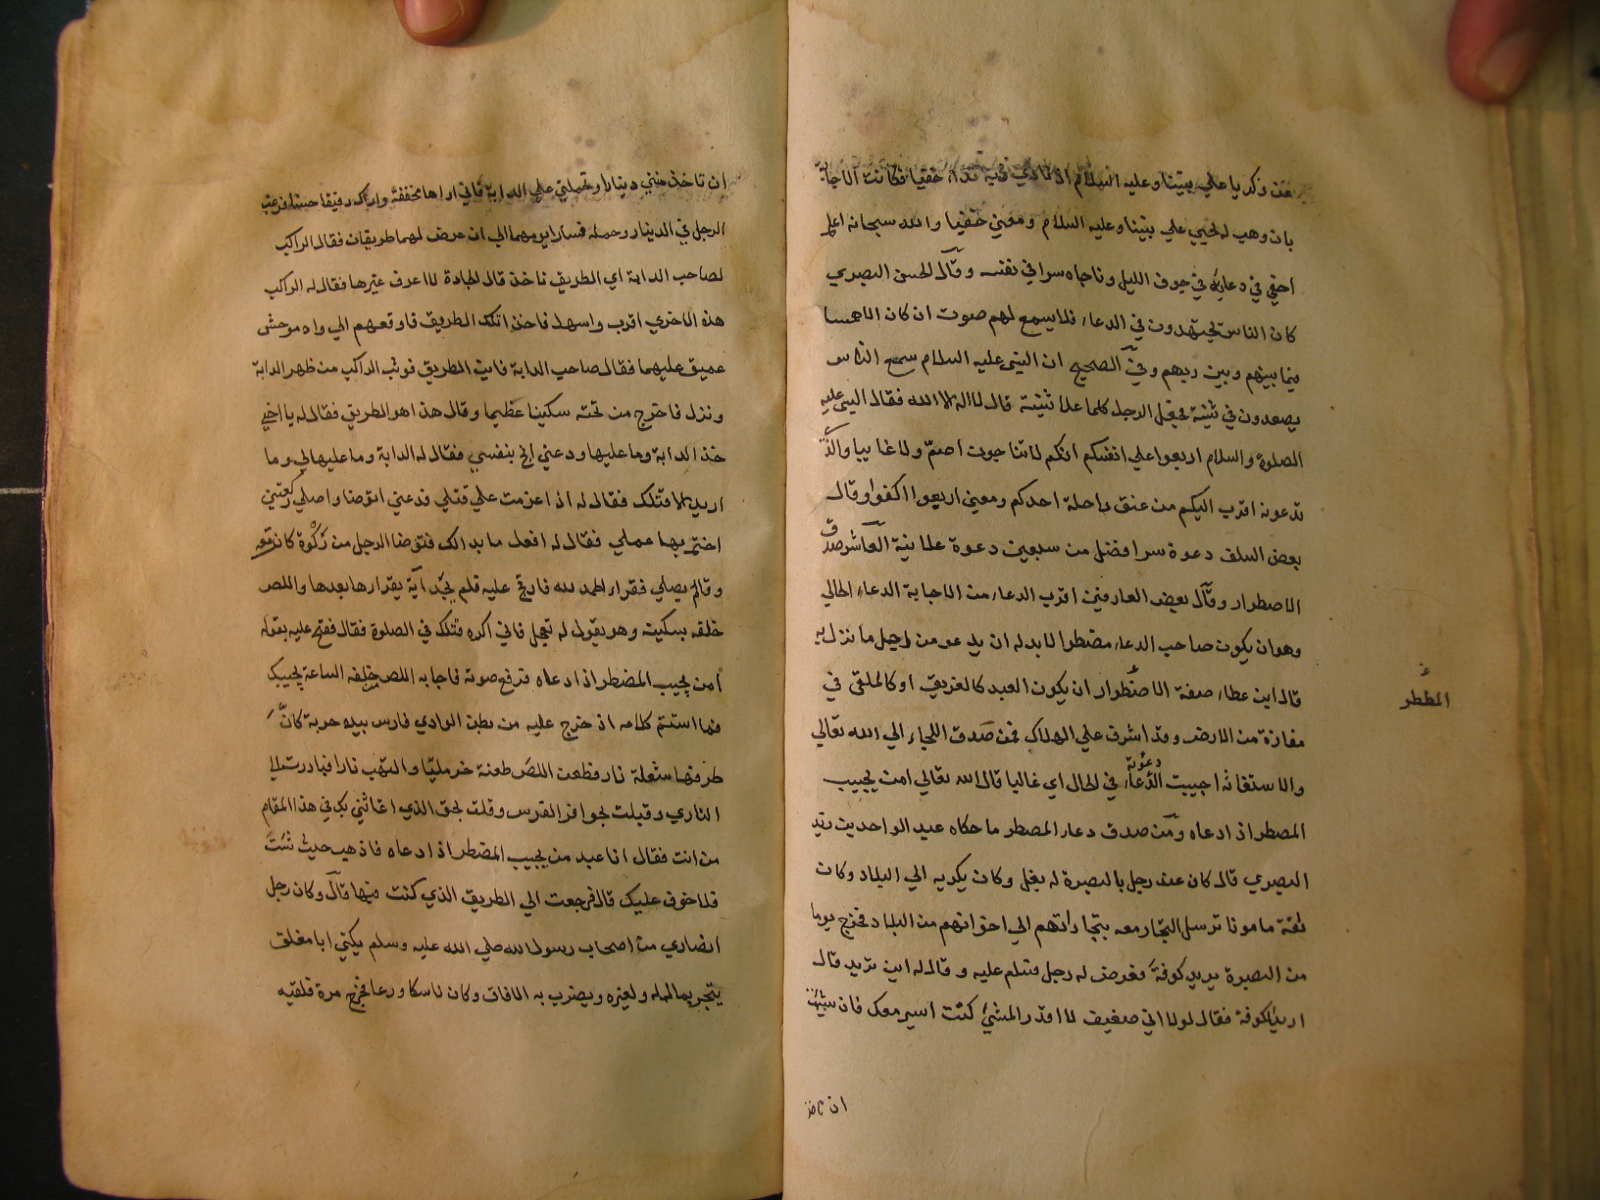 عن زكريا علي نبينا وعليه السلام اذ نادي ربه نداء خفيا فكانت الاجابة
بان وهب له يحيي علي نبينا وعليه السلام ومعني خفيا والله سبحانه اعلم
اخفي في دعايه في جوف الليل وناجاه سرا في نفسه وقال الحسن البصري
كان الناس يجتهدون في الدعاء فلا يسمع لهم صوت ان كان الا همسا
فيما بينهم وبين ربهم وفي الصحيح ان النبي عليه السلام سمع الناس
يصعدون في ثنية فجعل الرجل كلما علا ثنيته قال لا اله الا الله فقال النبي عليه
الصلوة والسلام اربعوا علي انفسكم انكم لا تناجون اصم ولا غايبا والذي
تدعونه اقرب اليكم من عنق راحلة احدكم ومعني اربعوا اكفوا وقال
بعض السلف دعوة سرا افضل من سبعين دعوة علانية العاشر صدق
الاضطرار وقال بعض العارفين اقرب الدعاء من الاجابة الدعاء الحالي
وهو ان يكون صاحب الدعاء مضطرا لا بد له ان يدعو من اجل ما نزل به
قال ابن عطاء صفة الاضطرار ان يكون العبد كالغريق او كالملقي في
مفازة من الارض وقد اشرف علي الهلاك فمن صدق اللجاء الي الله تعالي
والاستغاثة اجيبت الدعاء دعوته في الحال اي غالبا قال الله تعالي امن يجيب
المضطر اذ ادعاه ومن صدق دعاء المضطر ما حكاه عبد الواحد بن زيد
البصري قال كان عند رجل بالبصرة له بغل وكان يكريه الي البلاد وكان
ثقة مامونا ترسل التجار معه بتجاراتهم الي اخوانهم من البلاد فخرج يوما
من البصرة يريد كوفة فعرض له رجل فسلم عليه وقال له اين تريد قال
اريد الكوفة فقال لولا اني ضعيف لا اقدر المشي كنت اسير معك فان شئت
المططر
ان تاخذ
ان تاخذ مني دينارا وتحملني علي الدابة فاني اراها مخففة واراك رفيقا حسنا فرغب
الرجل في الدينار وحمله فسار ابهما الي ان عرض لهما طريقان فقال الراكب
لصاحب الدابة اي الطريق ناخذ قال الجادة لا اعرف غيرها فقال له الراكب
هذه الاخري اقرب واسهل فاخذ اتلك الطريق فاوقعهم الي واد موحش
عميق عليهما فقال صاحب الدابة فاين الطريق فوثب الراكب من ظهر الدابة
ونزل فاخرج من تحته سكينا عظيما وقال هذا هو الطريق فقال له يا اخي
خذ الدابة وما عليها ودعني انج بنفسي فقال له الدابة وما عليها لي وما
اريد الا قتلك فقال له اذ اعزمت علي قتلي فدعني اتوضا واصلي ركعتين
اختم بها عملي فقال له افعل ما بدالك فتوضا الرجل من ركوة كان معه
وقام يصلي فقراء الحمد لله فارتج عليه فلم يجد اية يقرارها بعدها واللص
خلفه بسكينه وهو يقول له تعجل فاني اكره قتلك في الصلوة فقال ففتح عليه بقوله
امن يجيب المضطر اذ ادعاه فرفع صوته فاجابه اللص خلفه الساعة يجيبك
فما استتم كلامه اذ خرج عليه من بطن الوادي فارس بيده حربة كان
طرفها شعلة نار فطعن اللص طعنة خر ميتا والتهب نارا فبادرت الي
الثاري وقبلت بحوافر الفرس وقلت بحق الذي اغاثني بك في هذا المقام
من انت فقال انا عبد من يجيب المضطر اذ ادعاه فاذهب حيث شئت
فلا خوف عليك قال فرجعت الي الطريق الذي كنت فيها قال وكان رجل
انصاري من اصحاب رسول الله صلي الله عليه وسلم يكني ابا مغلق
يتجر بماله ولغيره ويضرب به الافاق وكان ناسكا ورعا فخرج مرة فلقيه